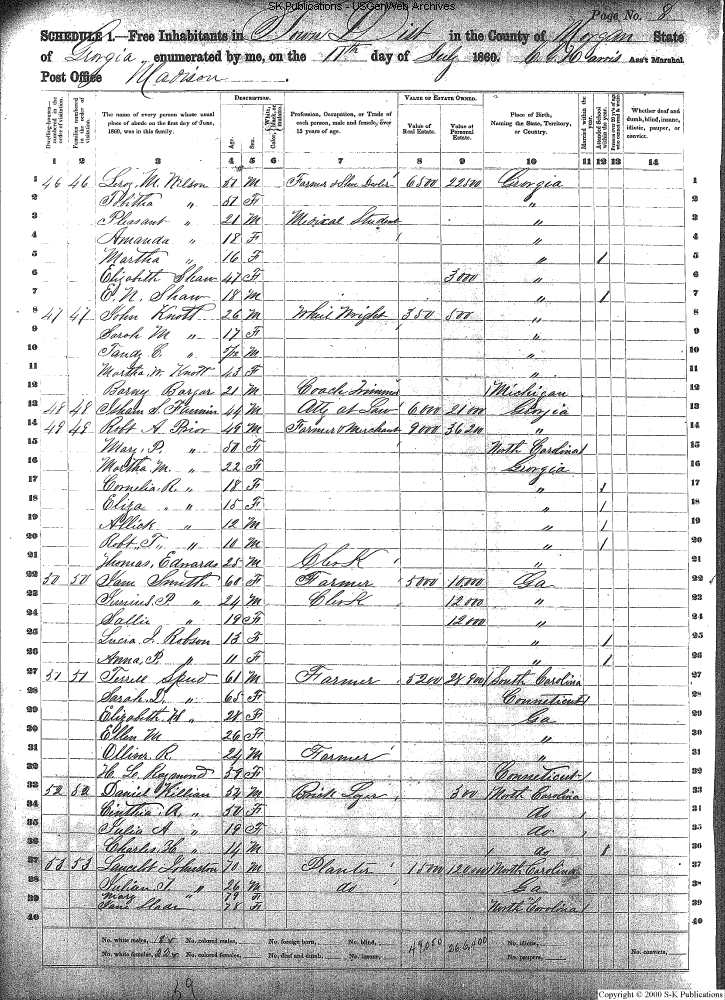 SK Publications - USGenWeb Archives
Page No. 8
SCHEDULE 1.—Free Inhabitants in Town Dist in the County of Morgan State
of Georgia enumerated by me, on the 11th day of July 1860. Harris Ass't Marshal.
Post Office Madison
DESCRIPTION. VALUE OF ESTATE OWNED.
Dwelling-houses numbered in the order of visitation. Families numbered in the order of visitation. The name of every person whose usual place of abode on the first day of June, 1860, was in this family. Age. Sex. Color, Profession, Occupation, or Trade of each person, male and female, over 15 years of age. Value of Real Estate. Value of Personal Estate. Place of Birth, Naming the State, Territory, or Country. Married within the year. Attended School within the year. Whether deaf and dumb, blind, insane, idiotic, pauper, or convict.
1 2 3 4 5 6 7 8 9 10 11 12 13 14
1 46 46 Leroy M. Wilson 51 M Farmer & 6500 22500 Georgia 1
2 Tobitha " 51 F " 2
3 Pleasant " 21 M Medical Student " 3
4 Amanda " 18 F " 4
5 Martha " 16 F " 1 5
6 Elizabeth Shaw 47 F 3000 " 6
7 E. N. Shaw 18 M " 1 7
8 47 47 John Knott 26 M Wheel Wright 350 500 " 8
9 Sarah M " 17 F " 9
10 Tandy C. " M " 10
11 Martha W. Knott 43 F " 11
12 Barny Bargar 21 M Coach Trimmer Michigan 12
13 48 48 Isham S. Fannin 44 M Atty at Law 6000 21000 Georgia 13
14 49 49 Robt A. Prior 49 M Farmer & Merchant 9000 36200 " 14
15 Mary P. " 50 F North Carolina 15
16 Martha M. " 22 F Georgia 16
17 Cornelia R. " 18 F " 1 17
18 Eliza " 15 F " 1 18
19 Allick " 12 M " 1 19
20 Robt T. " 10 M " 1 20
21 Thomas Edwards 25 M Clerk " 21
22 50 50 Sam Smith 60 F Farmer 5000 10000 Ga 22
23 Junius P. " 24 M Clerk 12000 " 23
24 Sallie " 19 F 12000 " 24
25 Lucia J. Robson 13 F " 1 25
26 Anna P. " 11 F " 1 26
27 51 51 Terrell Spud 61 M Farmer 5200 South Carolina 27
28 Sarah D. " 65 F Conneticut 28
29 Elizabeth H " 28 F Ga 29
30 Ellen M 26 F " 30
31 Oliver R. 24 M Farmer " 31
32 Raymond 59 F Conneticut 32
33 52 52 Daniel Killian 52 M Brick Layer 300 North Carolina 33
34 Cinthia A. " 50 F do 34
35 Julia A " 19 F do 35
36 Charles H " 14 M do 1 36
37 53 53 Lancelot Johnston 70 M Planter North Carolina 37
38 Julian T. " 26 M do Ga 38
39 Mary " 79 F 39
40 Jane Slade 78 F North Carolina 40
No. white males, 18 No. colored males, No. foreign born, No. blind, No. idiotic,
No. white females, 22 No. colored females, No. deaf and dumb, No. insane, No. paupers, No. convicts,
69
Copyright © 2000 S-K Publications